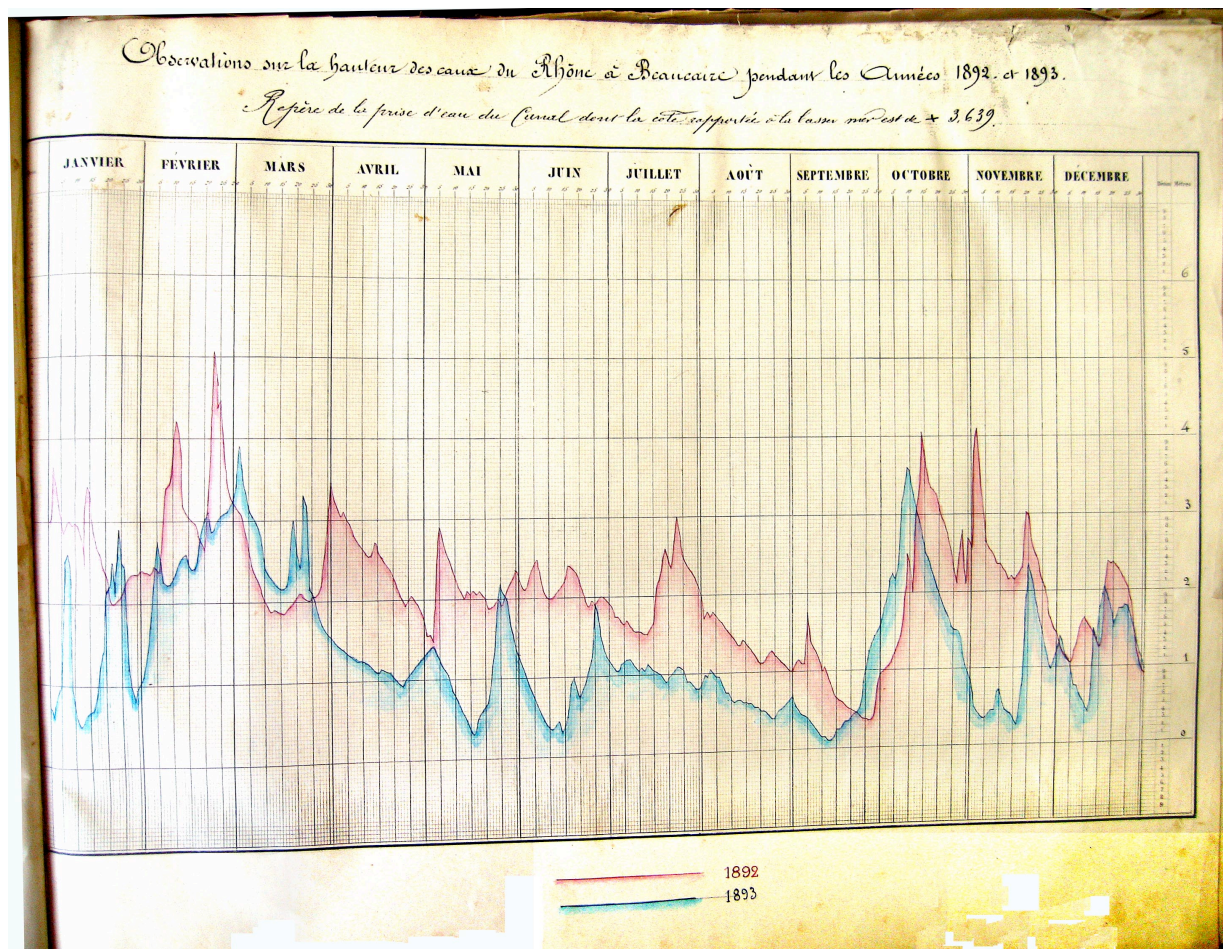 Observations sur la hauteur des eaux du Rhône à Beaucaire pendant les Années 1892 et 1893.
Repère de la prise d'eau du Canal dont la côte rapportée à la basse mer est de + 3.639.
JANVIER FÉVRIER MARS AVRIL MAI JUIN JUILLET AOÛT SEPTEMBRE OCTOBRE NOVEMBRE DÉCEMBRE
6
5
4
3
2
1
0
1892
1893